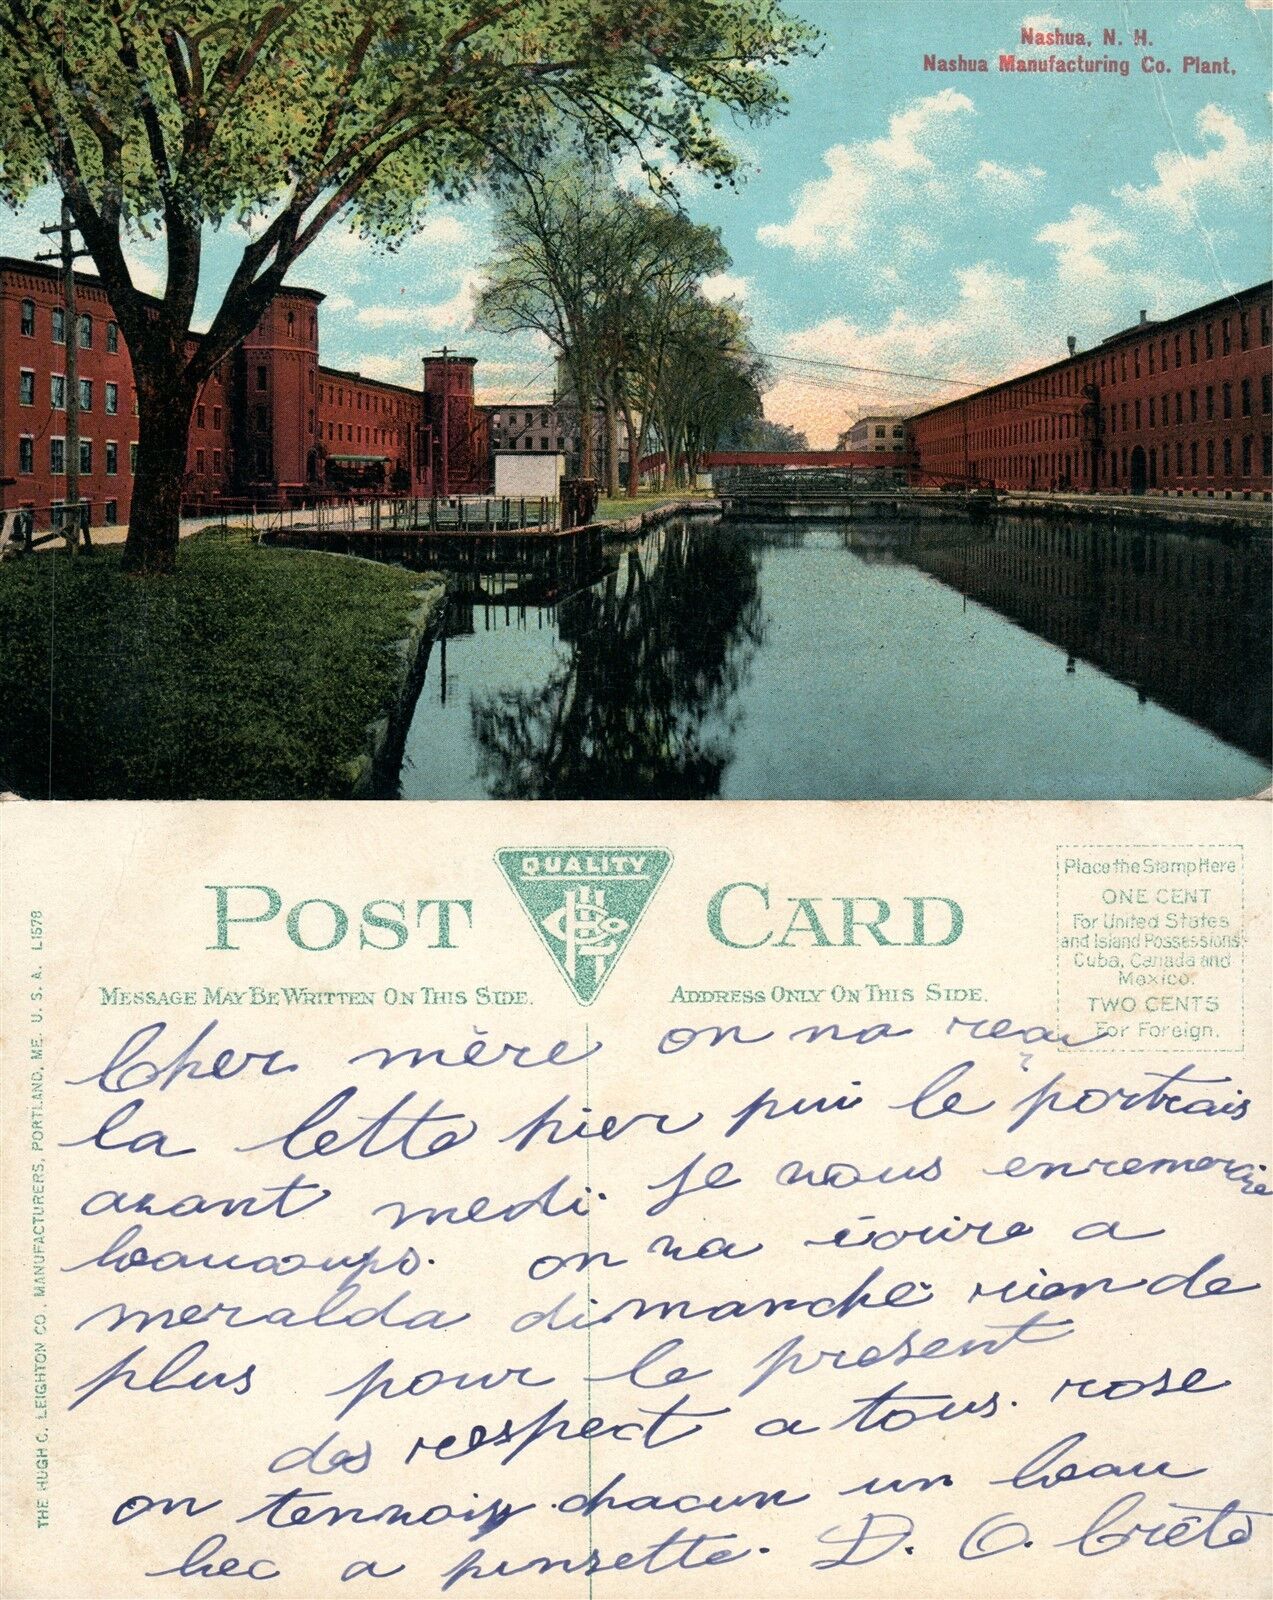 Nashua, N. H.
Nashua Manufacturing Co. Plant.
THE HUGH C. LEIGHTON CO., MANUFACTURERS, PORTLAND, ME. U. S. A. L1578
POST CARD
QUALITY
MESSAGE MAY BE WRITTEN ON THIS SIDE.
ADDRESS ONLY ON THIS SIDE.
Place the Stamp Here
ONE CENT
For United States
and Island Possessions,
Cuba, Canada and
Mexico.
TWO CENTS
For Foreign.
Cher mère on na
la lette hier pui le portrais
avant medi je vous enremercie
beaucoups. on va écrire a
meralda dimanche rien de
plus pour le present
des respect a tous. rose
on tennois chacun un beau
bec a pinsette. D. O. Crête